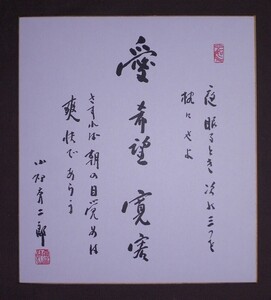 夜眠るとき次の三つを
枕にせよ
愛 希望 寛容
さすれば朝の目覚めは
爽快であろう